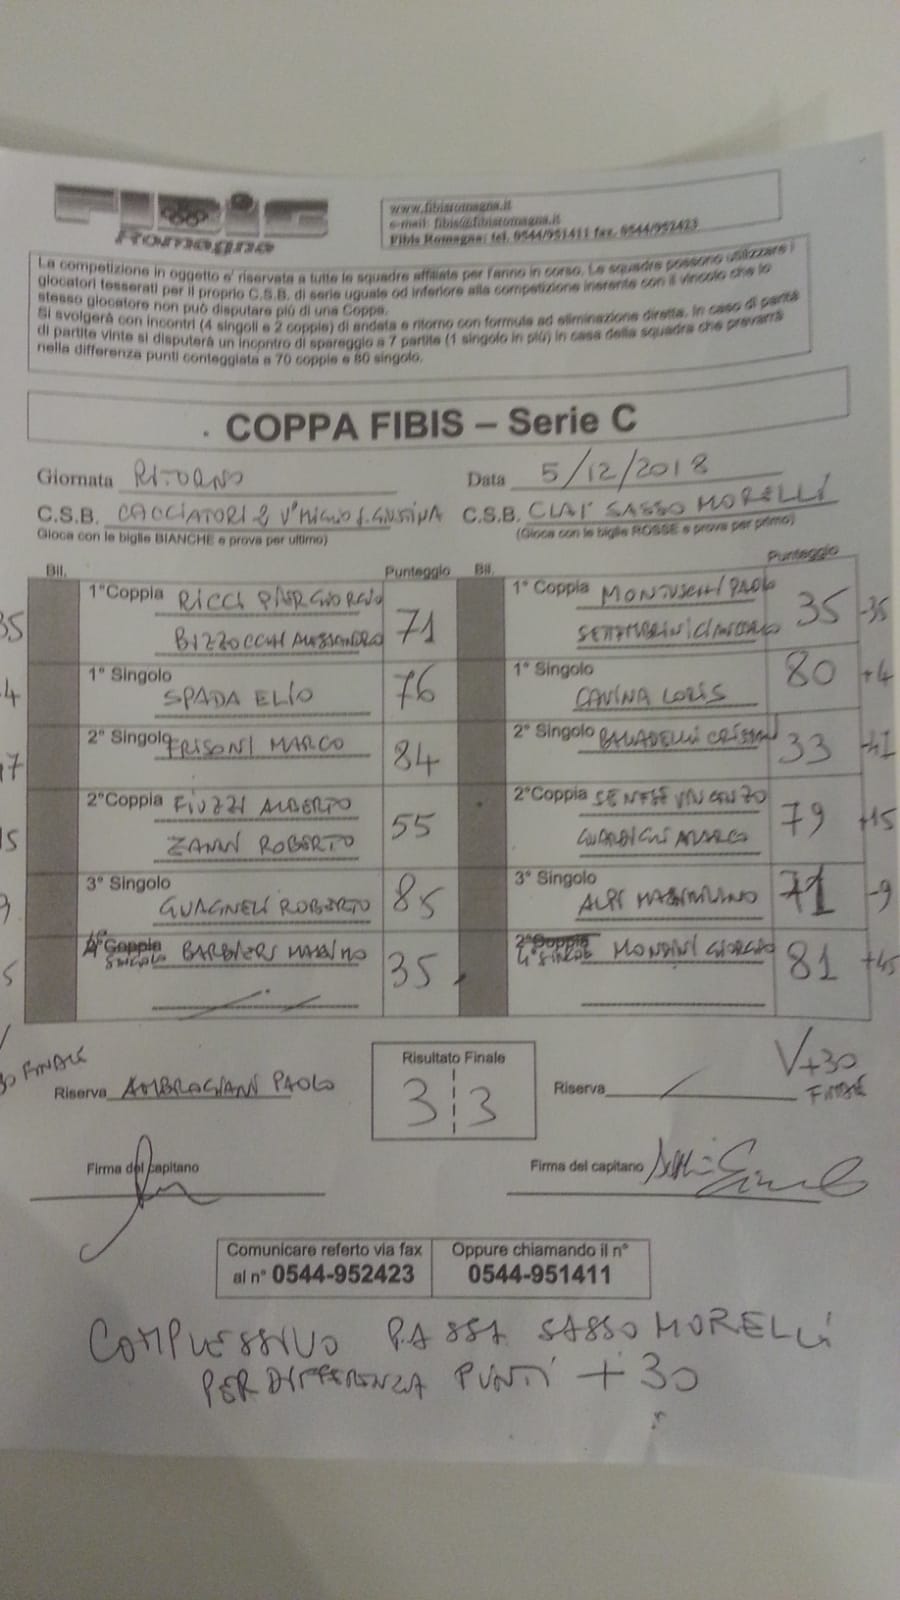 FIBIS
Romagna
www.fibisromagna.it
e-mail: fibis@fibisromagna.it
Fibis Romagna: tel. 0544/951411 fax. 0544/952423
La competizione in oggetto e' riservata a tutte le squadre affiliate per l'anno in corso. Le squadre possono utilizzare i
giocatori tesserati per il proprio C.S.B. di serie uguale od inferiore alla competizione inerente con il vincolo che lo
stesso giocatore non può disputare più di una Coppa.
Si svolgerà con incontri (4 singoli e 2 coppie) di andata e ritorno con formula ad eliminazione diretta. In caso di parità
di partite vinte si disputerà un incontro di spareggio a 7 partite (1 singolo in più) in casa della squadra che prevarrà
nella differenza punti conteggiata a 70 coppie e 80 singolo.
COPPA FIBIS – Serie C
Giornata RITORNO Data 5/12/2018
C.S.B. CACCIATORI C.S.B. CLAI SASSO MORELLI
Gioca con le biglie BIANCHE e prova per ultimo) (Gioca con le biglie ROSSE e prova per primo)
Bil. Punteggio Bil. Punteggio
1°Coppia RICCI PIERGIORGIO 71 1° Coppia MONTUSCHI PAOLO 35 -35
BIZZOCCHI ALESSANDRO
1° Singolo SPADA ELIO 76 1° Singolo CAVINA LORIS 80 +4
2° Singolo FRISONI MARCO 84 2° Singolo 33
2°Coppia FIUZZI ALBERTO 55 2°Coppia SENESE VINCENZO 79 +15
ZANNI ROBERTO MARCO
3° Singolo ROBERTO 85 3° Singolo ALPI MASSIMILIANO 71 -9
4° Coppia SINGOLO BARBIERI MASSIMO 35 2°Coppia 4° SINGOLO MONDINI GIORGIO 81 +45
FINALE V+30
FINALE
Riserva AMBROGIANI PAOLO Risultato Finale 3 3 Riserva
Firma del capitano Firma del capitano
Comunicare referto via fax Oppure chiamando il n°
al n° 0544-952423 0544-951411
COMPLESSIVO PASSA SASSO MORELLI
PER DIFFERENZA PUNTI +30